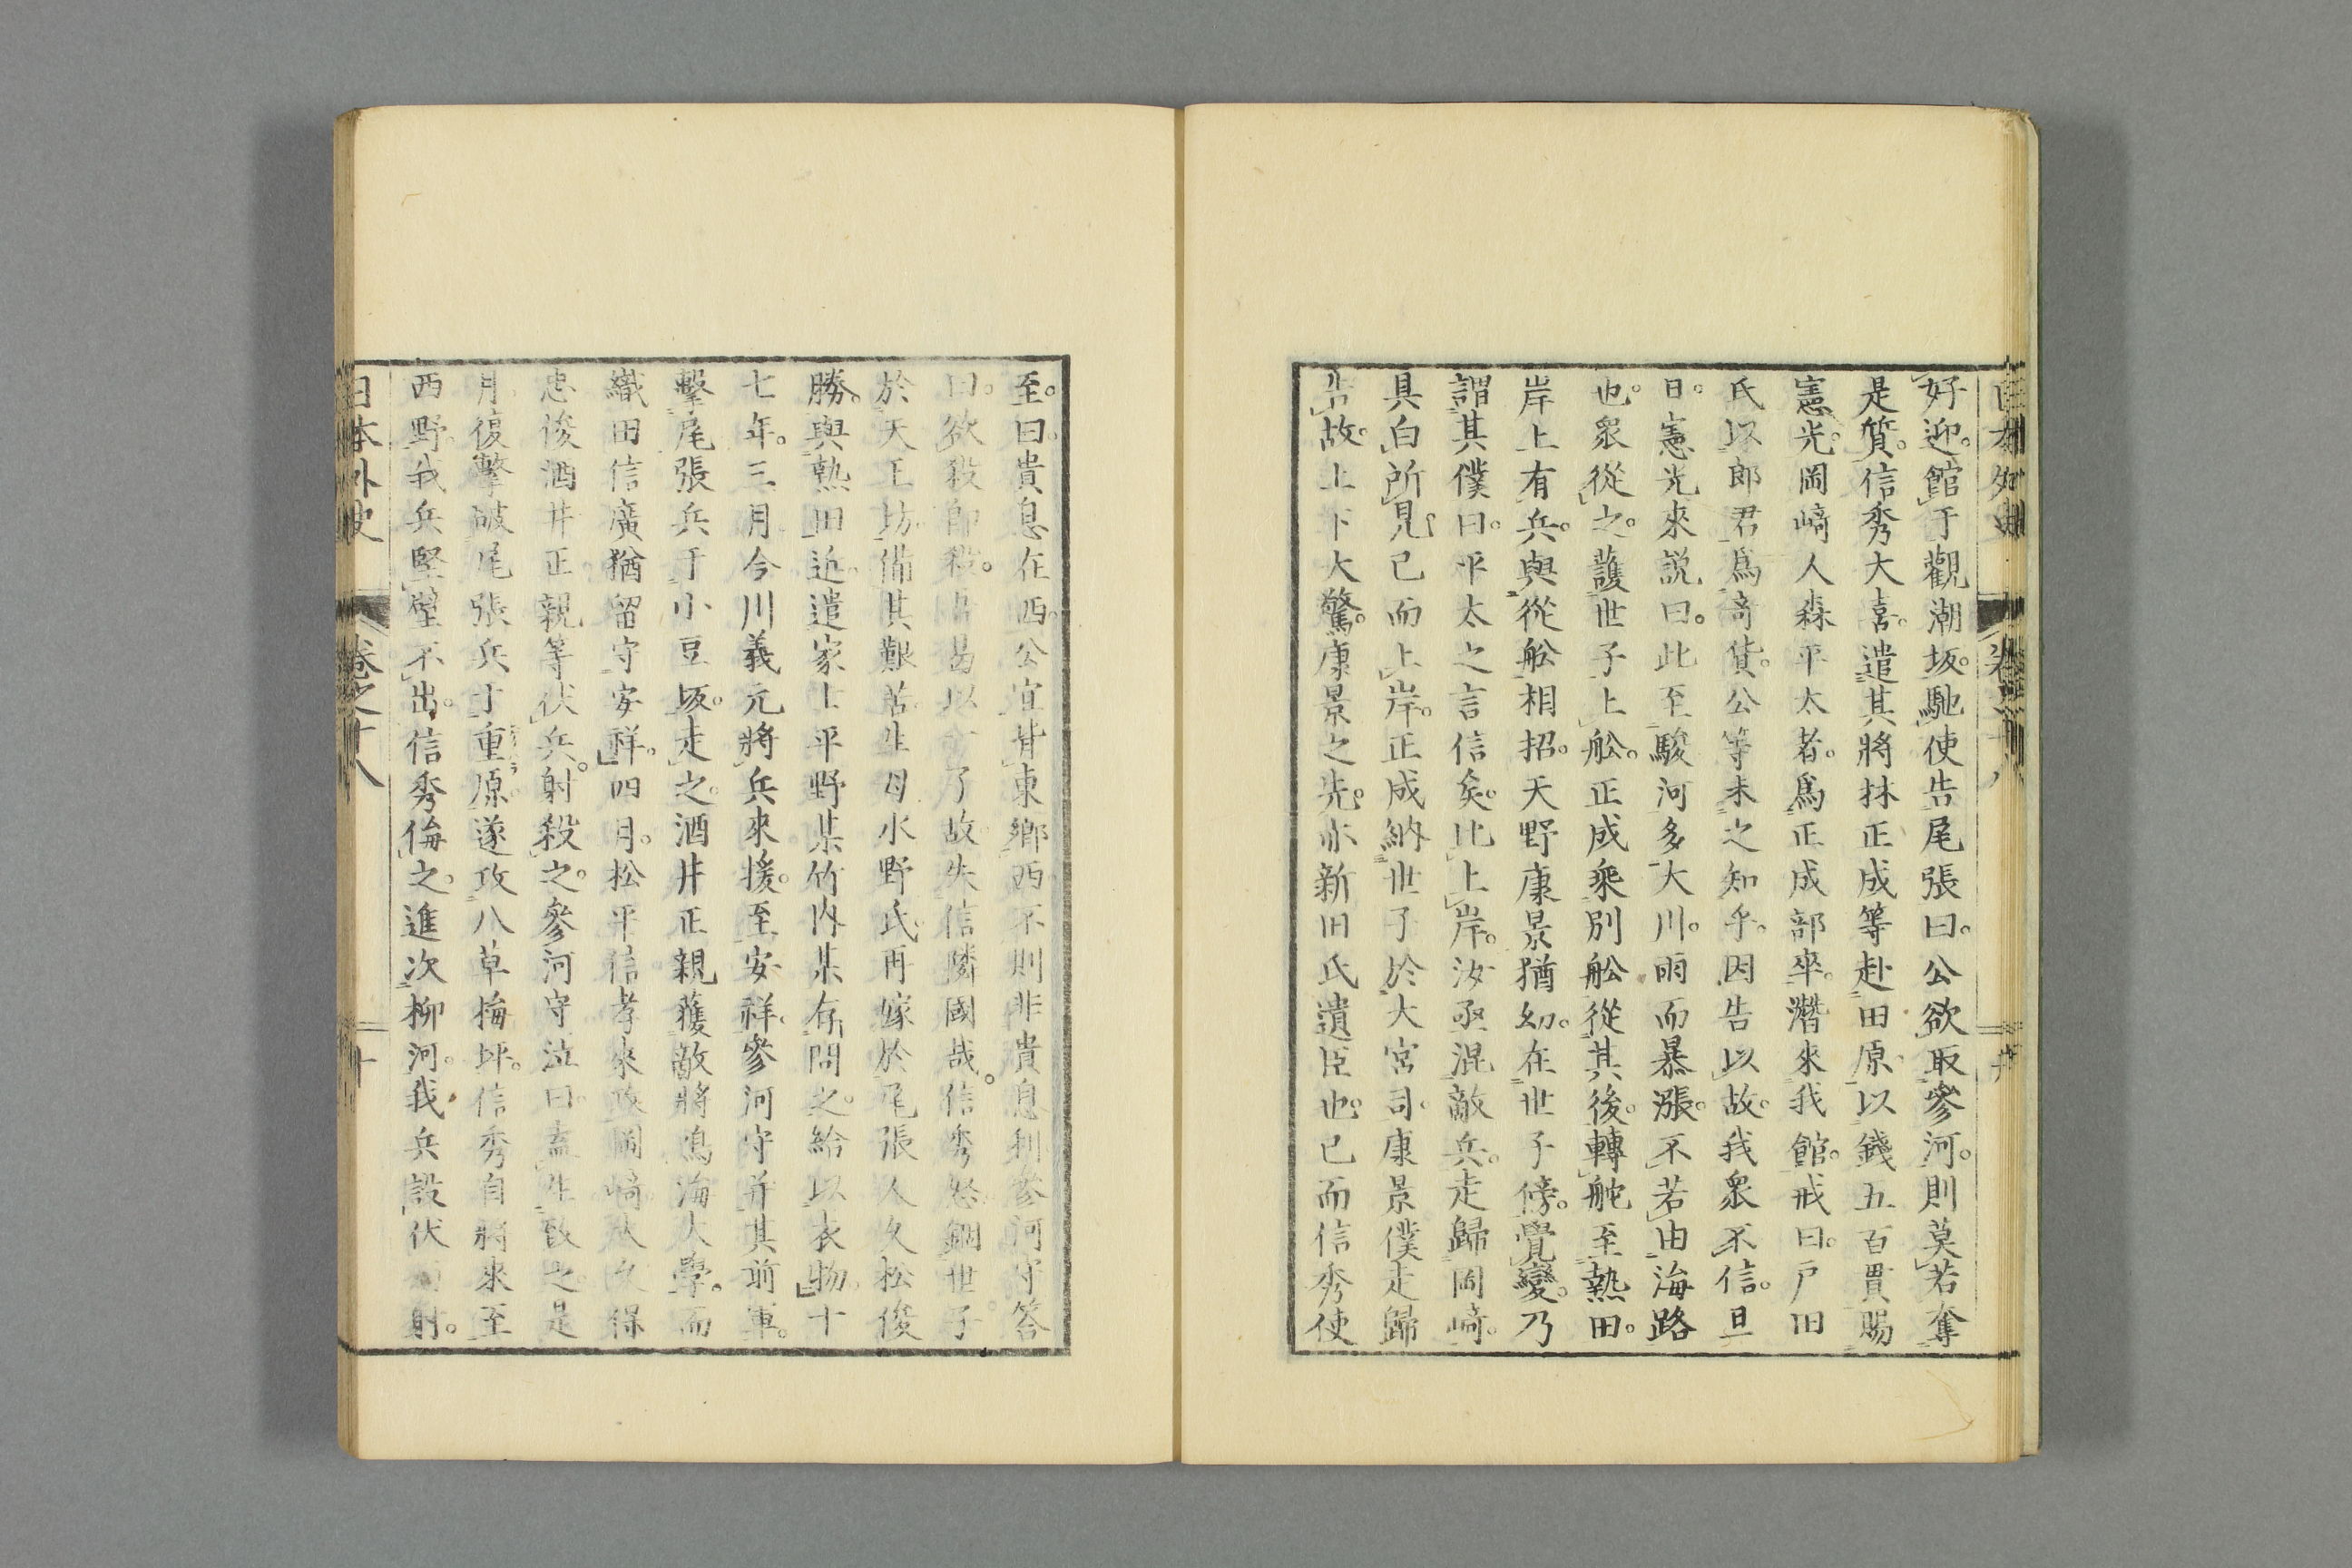 好迎。館于觀潮坂。馳使告尾張曰。公欲取參河。則莫若奪
是質。信秀大喜。遣其將林正成等赴田原。以錢五百貫賜
憲光。岡崎人森平太者。爲正成部卒。潛來我館。戒曰。戸田
氏以郎君爲奇貨。公等未之知乎。因告以故。我衆不信。旦
日。憲光來説曰。此至駿河多大川。雨而暴漲。不若由海路
也。衆從之。護世子上舩。正成乘別舩從其後。轉舵至熱田。
岸上有兵。與從舩相招。天野康景猶幼。在世子傍。覺變。乃
謂其僕曰。平太之言信矣。比上岸。汝亟混敵兵。走歸岡崎。
具白所見。已而上岸。正成納世子於大宮司。康景僕走歸
告故。上下大驚。康景之先。亦新田氏遺臣也。已而信秀使
至。曰。貴息在西。公宜背東鄉西。不則非貴息利。參河守答
曰。欲殺即殺。
故失信隣國哉。信秀怒。錮世子
於天王坊。備其艱苦。生母水野氏。再嫁於尾張人久松俊
勝。與熱田近。遣家士平野某竹内某存問之。給以衣物。十
七年。三月。今川義元將兵來援。至安祥。參河守并其前軍。
擊尾張兵于小豆坂。走之。酒井正親獲敵將鳴海大學。而
織田信廣猶留守安祥。四月。松平信孝來攻岡崎。
得
忠俊酒井正親等伏兵。射殺之。參河守泣曰。盍生致之。是
月。復擊破尾張兵于重原。遂攻八草梅坪。信秀自將來至
西野。我兵堅壁不出。信秀侮之。進次柳河。我兵設伏
射。
日本外史 卷之十八 十